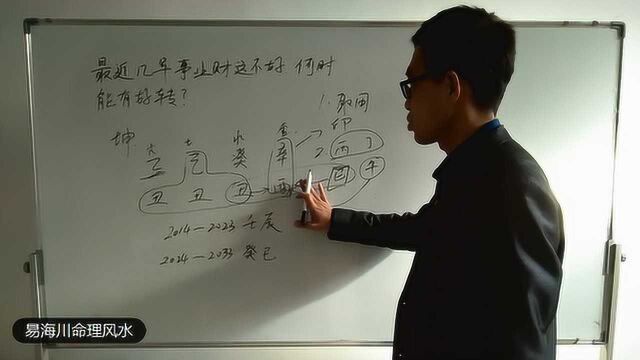 最近几年事业财运不好 何时
能有好转?
1. 取用
木 土 水 印
坤 乙 己 癸 辛 2. 丙 丁
丑 丑 丑 酉 巳 午
2014—2023 壬辰
2024—2033 癸巳
易海川命理风水